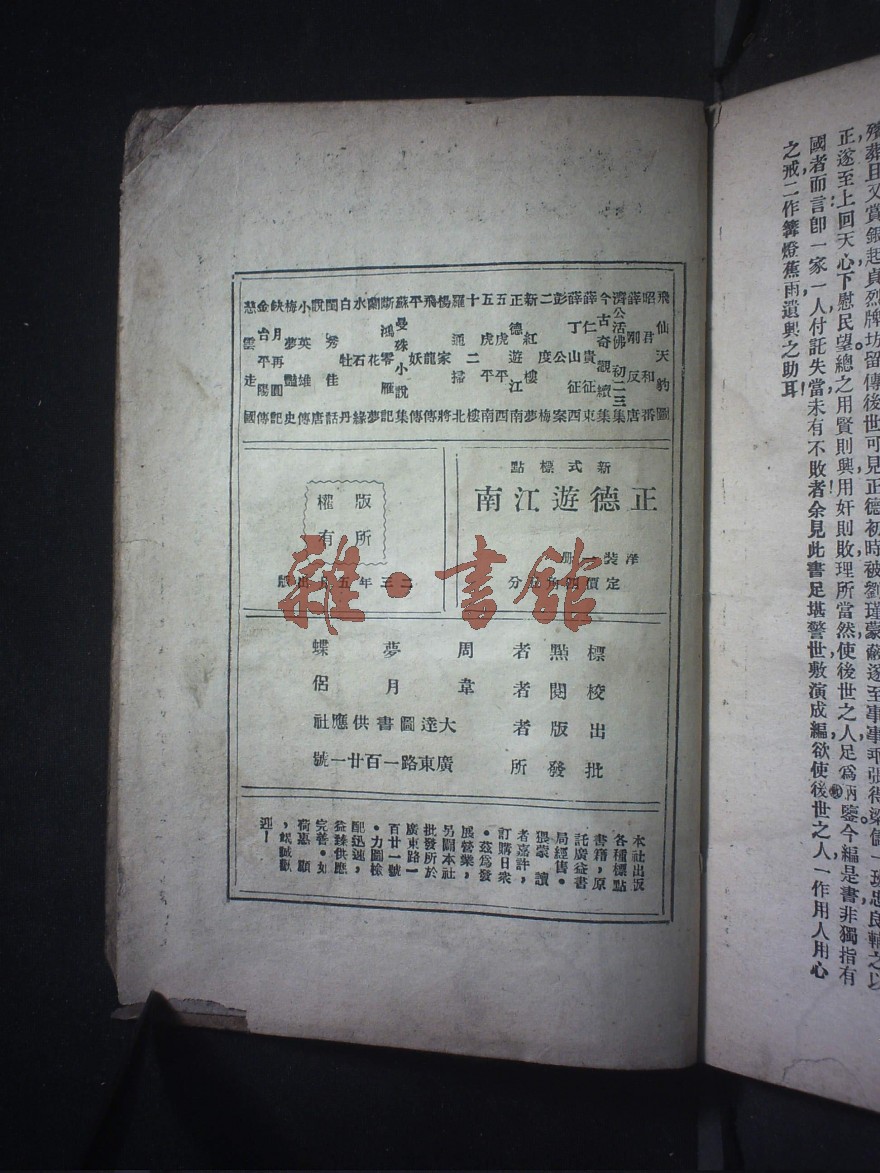 殯葬且又賞銀起貞烈牌坊留傳後世可見正德初時被劉瑾蒙蔽遂至事事乖張得梁儲一班忠良輔之以
正遂至上回天心下慰民望總之用賢則興用奸則敗理所當然使後世之人足爲炯鑒今編是書非獨指有
國者而言卽一家一人付託失當未有不敗者余見此書足堪警世敷演成編欲使後世之人一作用人用心
之戒二作篝燈蕉雨遣興之助耳
飛仙天豹圖
昭君和番
薛剛反唐
濟公活佛初二三集
今古奇觀續集
薛仁貴征東
薛丁山征西
彭公案
二度梅
新紅樓夢
正德遊江南
五虎平西
五虎平南
十二樓
羅通掃北
楊家將
飛龍傳
平妖傳
蘇曼殊小說集
斷鴻零雁記
蘭花夢
水石緣
白牡丹
閨秀佳話
說唐
小英雄傳
梅夢艷史
缺月再圓記
金台平陽傳
慈雲走國
新式標點
正德遊江南
洋裝一册
版權所有
標點者 周夢蝶
校閱者 韋月侶
出版者 大達圖書供應社
批發所 廣東路一百廿一號
本社出版
各種標點
書籍，原
託廣益書
局經售。
猥蒙讀
者嘉許，
訂購日衆
。茲爲發
展營業，
另闢本社
批發所於
廣東路一
百廿一號
。力圖檢
配迅速，
益臻供應
完善。如
荷惠顧
，竭誠歡
迎！
雜·書館